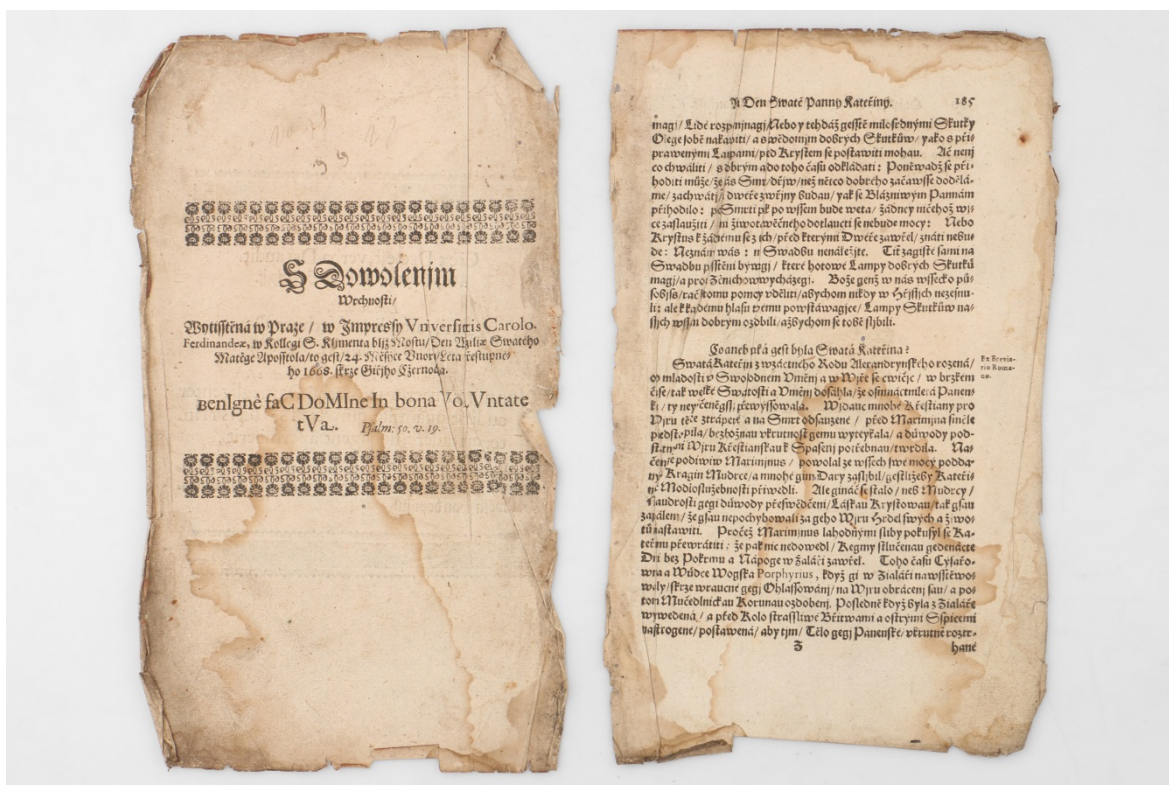 S Dowolenjm
Wrchnosti/
Wytisstěná w Praze / w Impressy Vniversitis Carolo-
Ferdinandeæ, w Kollegi S. Klymenta bljž Mostu/ Den Wiliæ Swatého
Matěge Aposstola/ to gest/ 24. Měsýce Vnori/ Leta Přestupné-
ho 1668. skrze Giřjho Cžernocha.
BenIgnè faC DoMIne In bona VoLVntate
tVa. Psalm: 50. v. 19.
Den Swaté Panny Kateřiny. 185
magj/ Lidé rozpjnagj/ Nebo y tehdáž gessstě milosrdnými Skutky
Olege sobě nakaupiti/ a swědomjm dobrých Skutkůw/ yako s při-
prawenými Lampami/ před Krystem se postawiti mohau. Ač nenj
co chwáliti/ s dobrým až do toho času odkládati: Poněwadž se při-
hoditi může/ že nás Smrt/ dřjw/ než něco dobrého začawsse dodělá-
me/ zachwátj/ dweře zwřjny budau/ yak se Bláznwým Pannám
přihodilo: po Smrti pak po wssem bude weta/ žádney ničehož wj-
ce zaslaužiti/ ni žiwota wěčného dotlaucti se nebude mocy: Nebo
Krystus k žádnému se z jch/ před kterými Dweře zawřel/ znáti nebu-
de: Neznám wás: n Swadbu nenáležjte. Tiť zagisté sami na
Swadbu pusstěni býwagj/ kteřj hotowé Lampy dobrých Skutků
magj/ a proti Ženichowi wycházegj. Bože genž w nás wssecko pů-
sobjss/ rač k tomu pomoc vděliti/ abychom nikdy w Hřjssjch nezesnu-
li: ale k každému hlasu twému powstáwagjce/ Lampy Skutkůw na-
ssjch wssjm dobrým ozdobili/ až bychom se tobě sljbili.
Co aneb yaká gest byla Swatá Kateřina?
Swatá Kateřina z wzáctného Rodu Alexandrynského rozená/
od mladosti v Swobodném Vměnj a w Wjře se cwičjc/ w brzkém
čase/ tak welké Swatosti a Vměnj dosáhla/ že osmnáctiletá Panen-
ka/ ty neyvčeněgssj převyssowala. Wjdauc mnohé Křesťany pro
Wjru těžce ztrápené a na Smrt odsauzené/ před Maximina směle
předstaupila/ bezbožnau vkrutnost gemu wyteykala/ a důwody pod-
statnými Wjru Křesťanskau k Spasenj potřebnau/ twrdila. Na
čež podiwiw Maximinus/ powolal ze wssech swé mocy podda-
ných Kragin Mudrce/ a mnohé gim Dary zasljbil/ gestližeby Kateři-
nu k Modloslužebnosti přiwedli. Ale gináč se stalo/ neb Mudrcy/
Maudrosti gegj důwody přeswědčeni/ Láskau Krystowau/ tak gsau
zapáleni/ že gsau nepochybowali za geho Wjru Hrdel swých a žiwo-
tů nastawiti. Pročež Maximinus lahodnými sliby pokusyl se Ka-
teřinu přewrátiti: že pak nic nedowedl/ Kegmy stlučenau gedenácte
Dnj bez Pokrmu a Nápoge w žaláři zawřel. Toho času Cýsařo-
wna a Wůdce Wogska Porphyrius, když gi w Žialáři nawsstěwo-
waly/ skrze wraucné gegj Ohlassowánj/ na Wjru obráceni sau/ a po-
tom Mučedlnickau Korunau ozdobeni. Posledně když byla z Žialáře
wywedená/ a před Kolo strassliwé Břitwami a ostrými Sspicemi
nastrogené/ postawená/ aby tjm/ Tělo gegj Panenské/ vkrutně roztr-
Z hané
Ex Brevia-
rio Roma-
no.